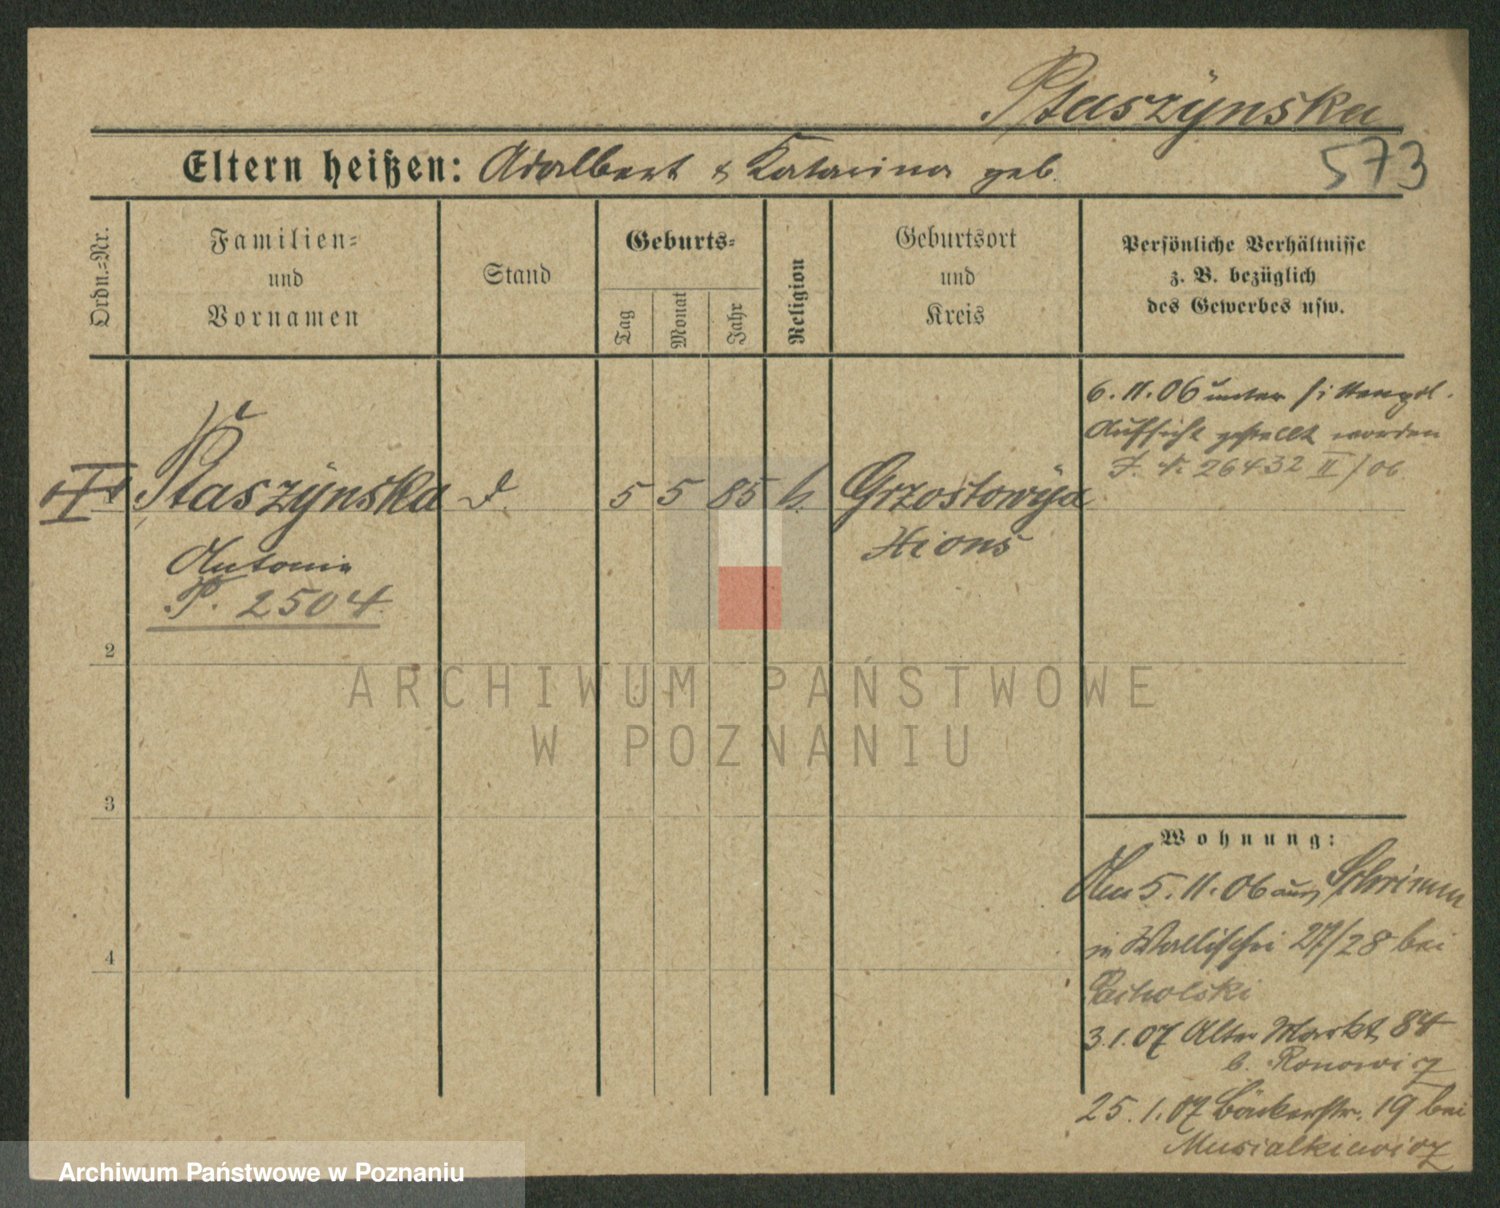 Ptaszÿnska
Eltern heißen: Adalbert & Katarina geb.
573
Ordn.-Nr.
Familien-
und
Vornamen
Stand
Geburts-
Tag
Monat
Jahr
Religion
Geburtsort
und
Kreis
Persönliche Verhältnisse
z. B. bezüglich
des Gewerbes usw.
6.11.06 unter sittenpol.
Aufsicht gestellt worden
J. N. 26432 II/06
1
Ptaszÿnska
d.
5
5
85
k.
Grzostowÿa
Antonie
Xions
P. 2504
2
3
4
Wohnung:
Am 5.11.06 aus Schrimm
in Wallischei 27/28 bei
Pacholski
3.1.07 Alter Markt 84
b. Ronowicz
25.1.07 Bäckerstr. 19 bei
Musialkiewicz
ARCHIWUM PAŃSTWOWE
W POZNANIU
Archiwum Państwowe w Poznaniu